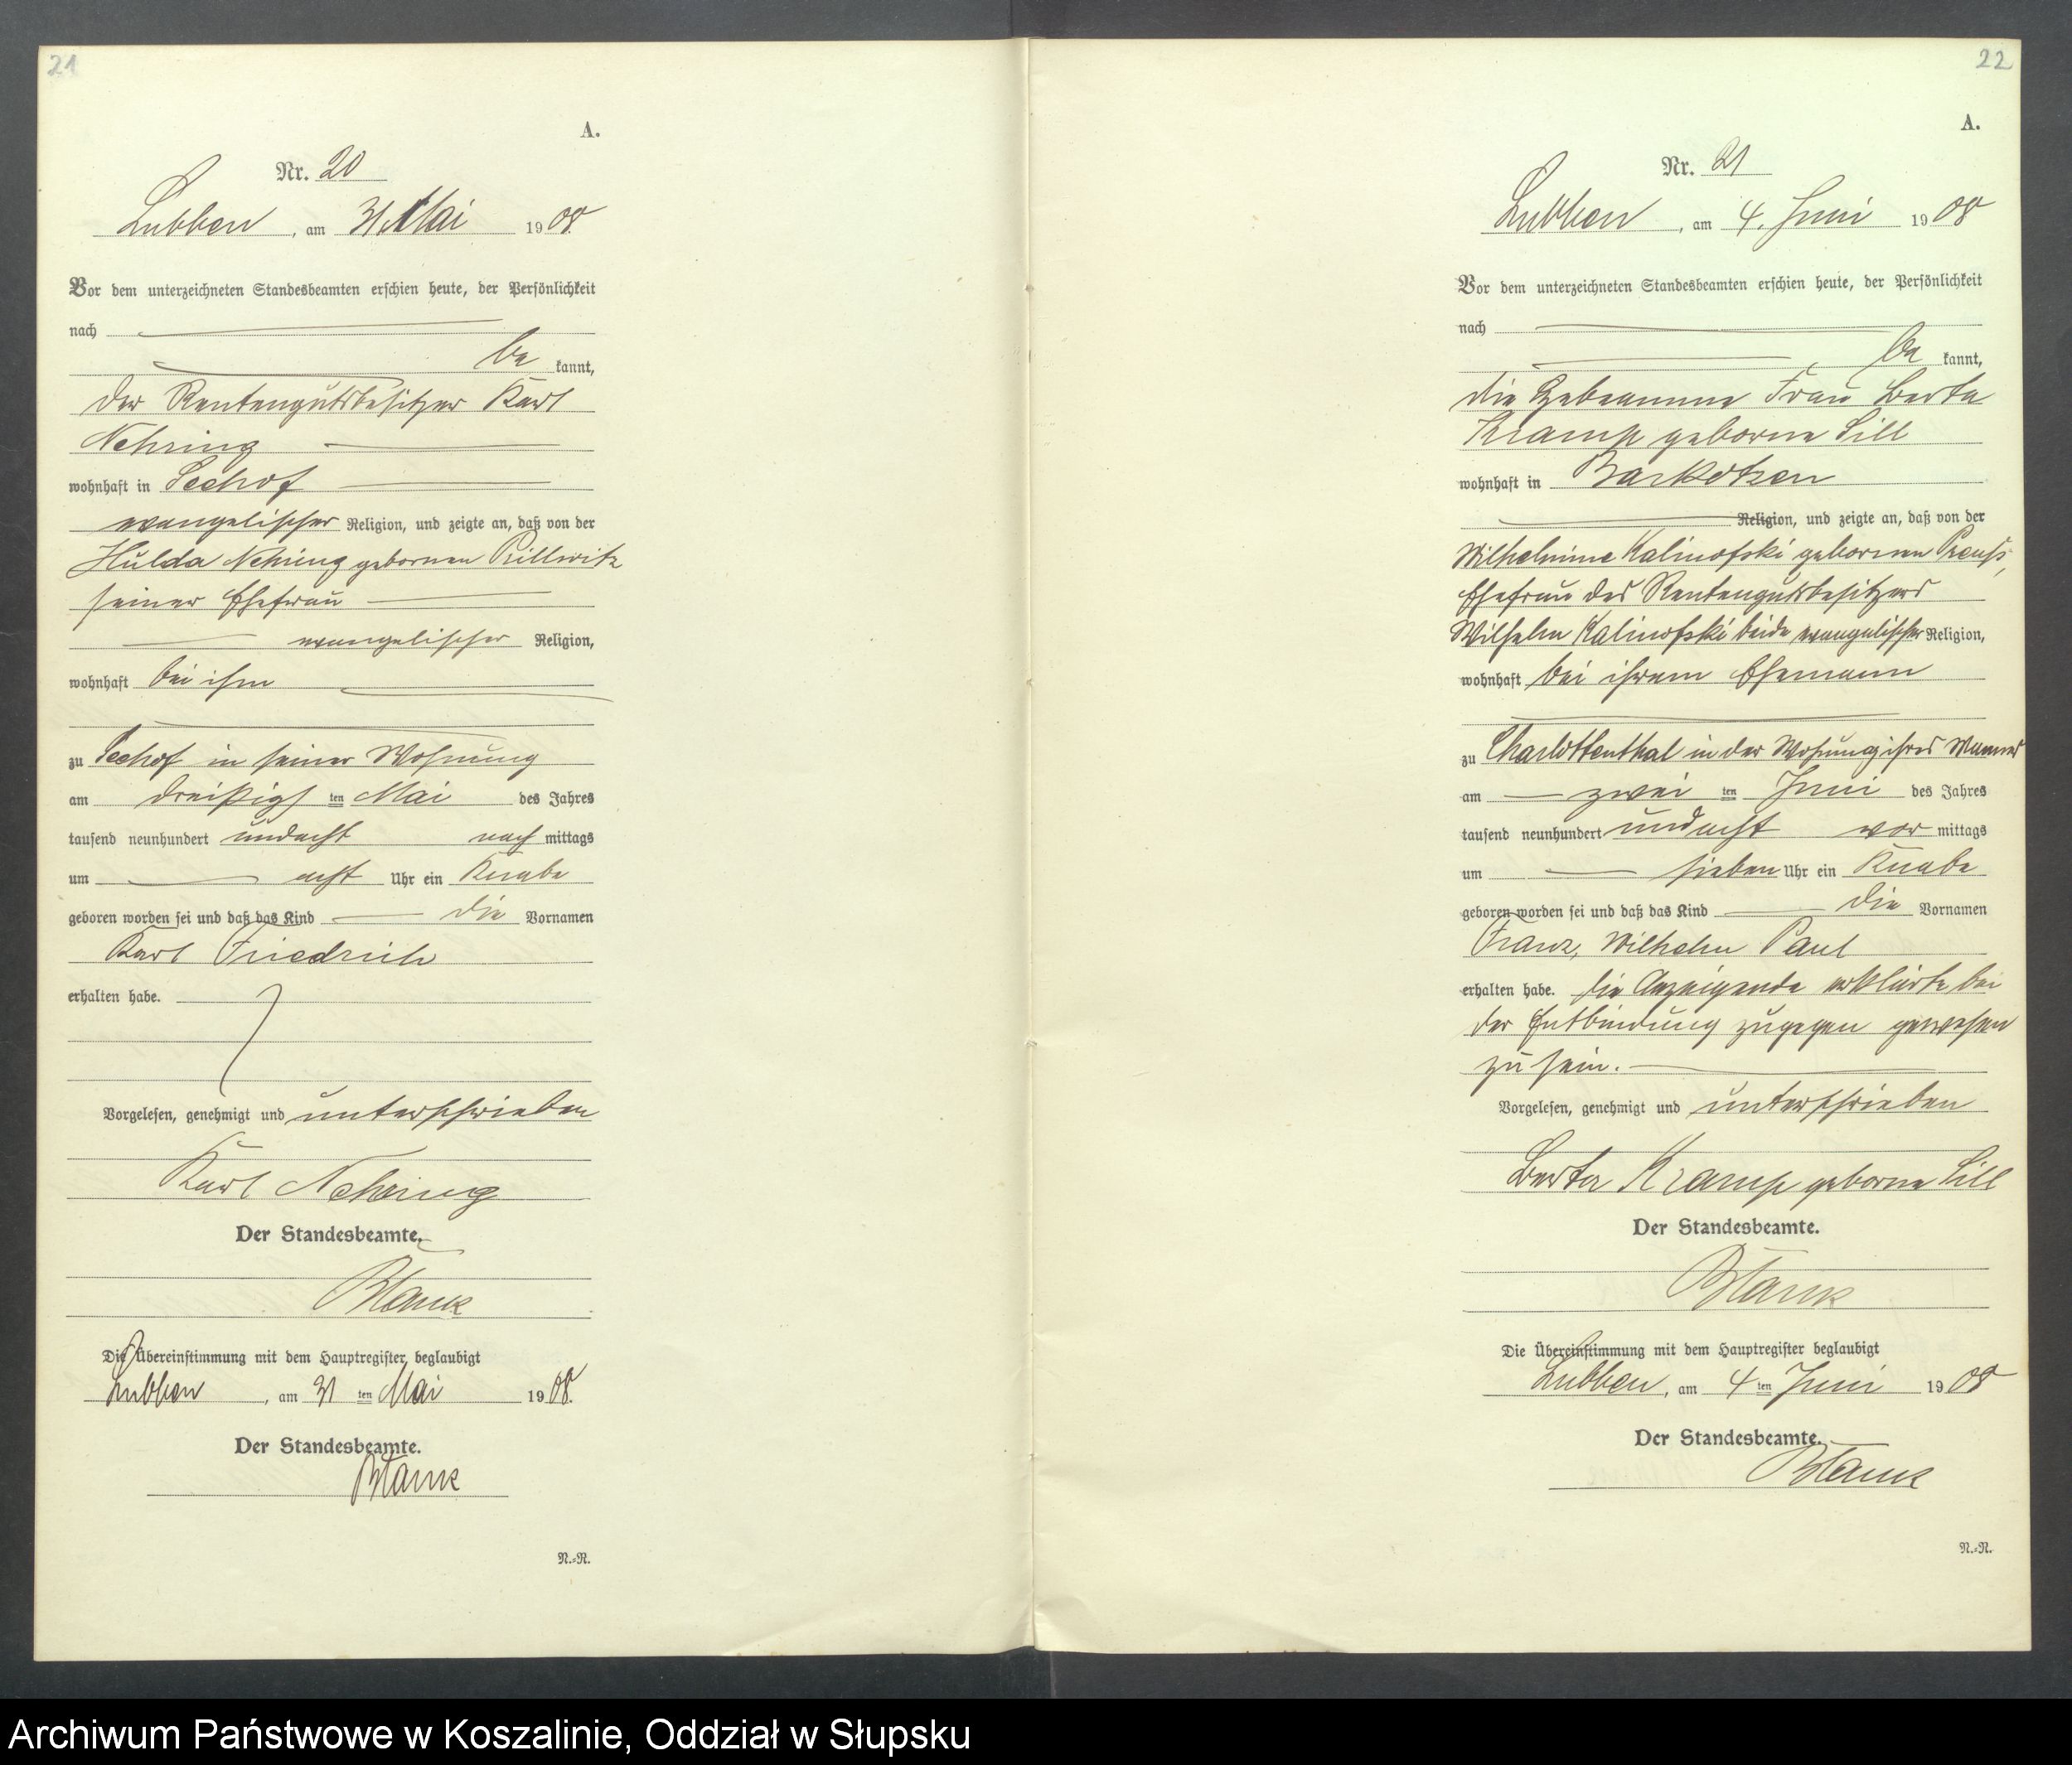 21
A.
Nr. 20
Lubben, am 31. Mai 1908.
Vor dem unterzeichneten Standesbeamten erschien heute, der Persönlichkeit
nach
be kannt,
der Rentengutsbesitzer Karl
Nehring
wohnhaft in Seehof
evangelischer Religion, und zeigte an, daß von der
Hulda Nehring gebornen Prillwitz
seiner Ehefrau
evangelischer Religion,
wohnhaft bei ihm
zu Seehof in seiner Wohnung
am dreißigsten Mai des Jahres
tausend neunhundert undacht nach mittags
um acht Uhr ein Knabe
geboren worden sei und daß das Kind die Vornamen
Karl Friedrich
erhalten habe.
Vorgelesen, genehmigt und unterschrieben
Karl Nehring
Der Standesbeamte.
Blank
Die Übereinstimmung mit dem Hauptregister beglaubigt
Lubben, am 31 ten Mai 1908.
Der Standesbeamte.
Blank
N.-N.
22
A.
Nr. 21
Lubben, am 4. Juni 1908
Vor dem unterzeichneten Standesbeamten erschien heute, der Persönlichkeit
nach
be kannt,
die Hebeamme Frau Berta
Kramp geborne Sill
wohnhaft in Barkotzen
Religion, und zeigte an, daß von der
Wilhelmine Kalinofski gebornen Preuß,
Ehefrau des Rentengutsbesitzers
Wilhelm Kalinofski beide evangelischer Religion,
wohnhaft bei ihrem Ehemann
zu Charlottenthal in der Wohnung ihres Mannes
am zwei ten Juni des Jahres
tausend neunhundert undacht vor mittags
um sieben Uhr ein Knabe
geboren worden sei und daß das Kind die Vornamen
Franz, Wilhelm Paul
erhalten habe. Die Anzeigende erklärte bei
der Entbindung zugegen gewesen
zu sein.
Vorgelesen, genehmigt und unterschrieben
Berta Kramp geborne Sill
Der Standesbeamte.
Blank
Die Übereinstimmung mit dem Hauptregister beglaubigt
Lubben, am 4 ten Juni 1908
Der Standesbeamte.
Blank
N.-N.
Archiwum Państwowe w Koszalinie, Oddział w Słupsku